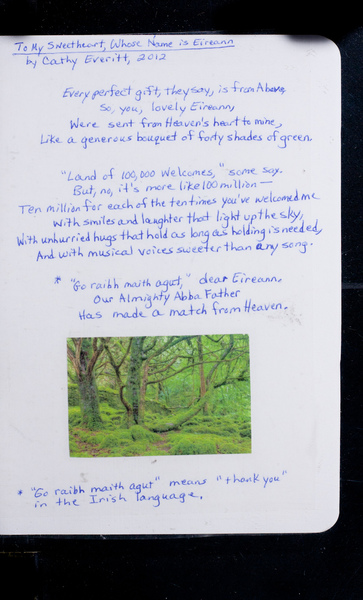 To My Sweetheart, Whose Name is Eireann
by Cathy Everitt, 2012
Every perfect gift, they say, is from Above.
So, you, lovely Eireann,
Were sent from Heaven's heart to mine,
Like a generous bouquet of forty shades of green.
"Land of 100,000 Welcomes," some say.
But, no, it's more like 100 million—
Ten million for each of the ten times you've welcomed me
With smiles and laughter that light up the sky,
With unhurried hugs that hold as long as holding is needed,
And with musical voices sweeter than any song.
* "Go raibh maith agut," dear Eireann.
Our Almighty Abba Father
Has made a match from Heaven.
* "Go raibh maith agut" means "thank you"
in the Irish language.